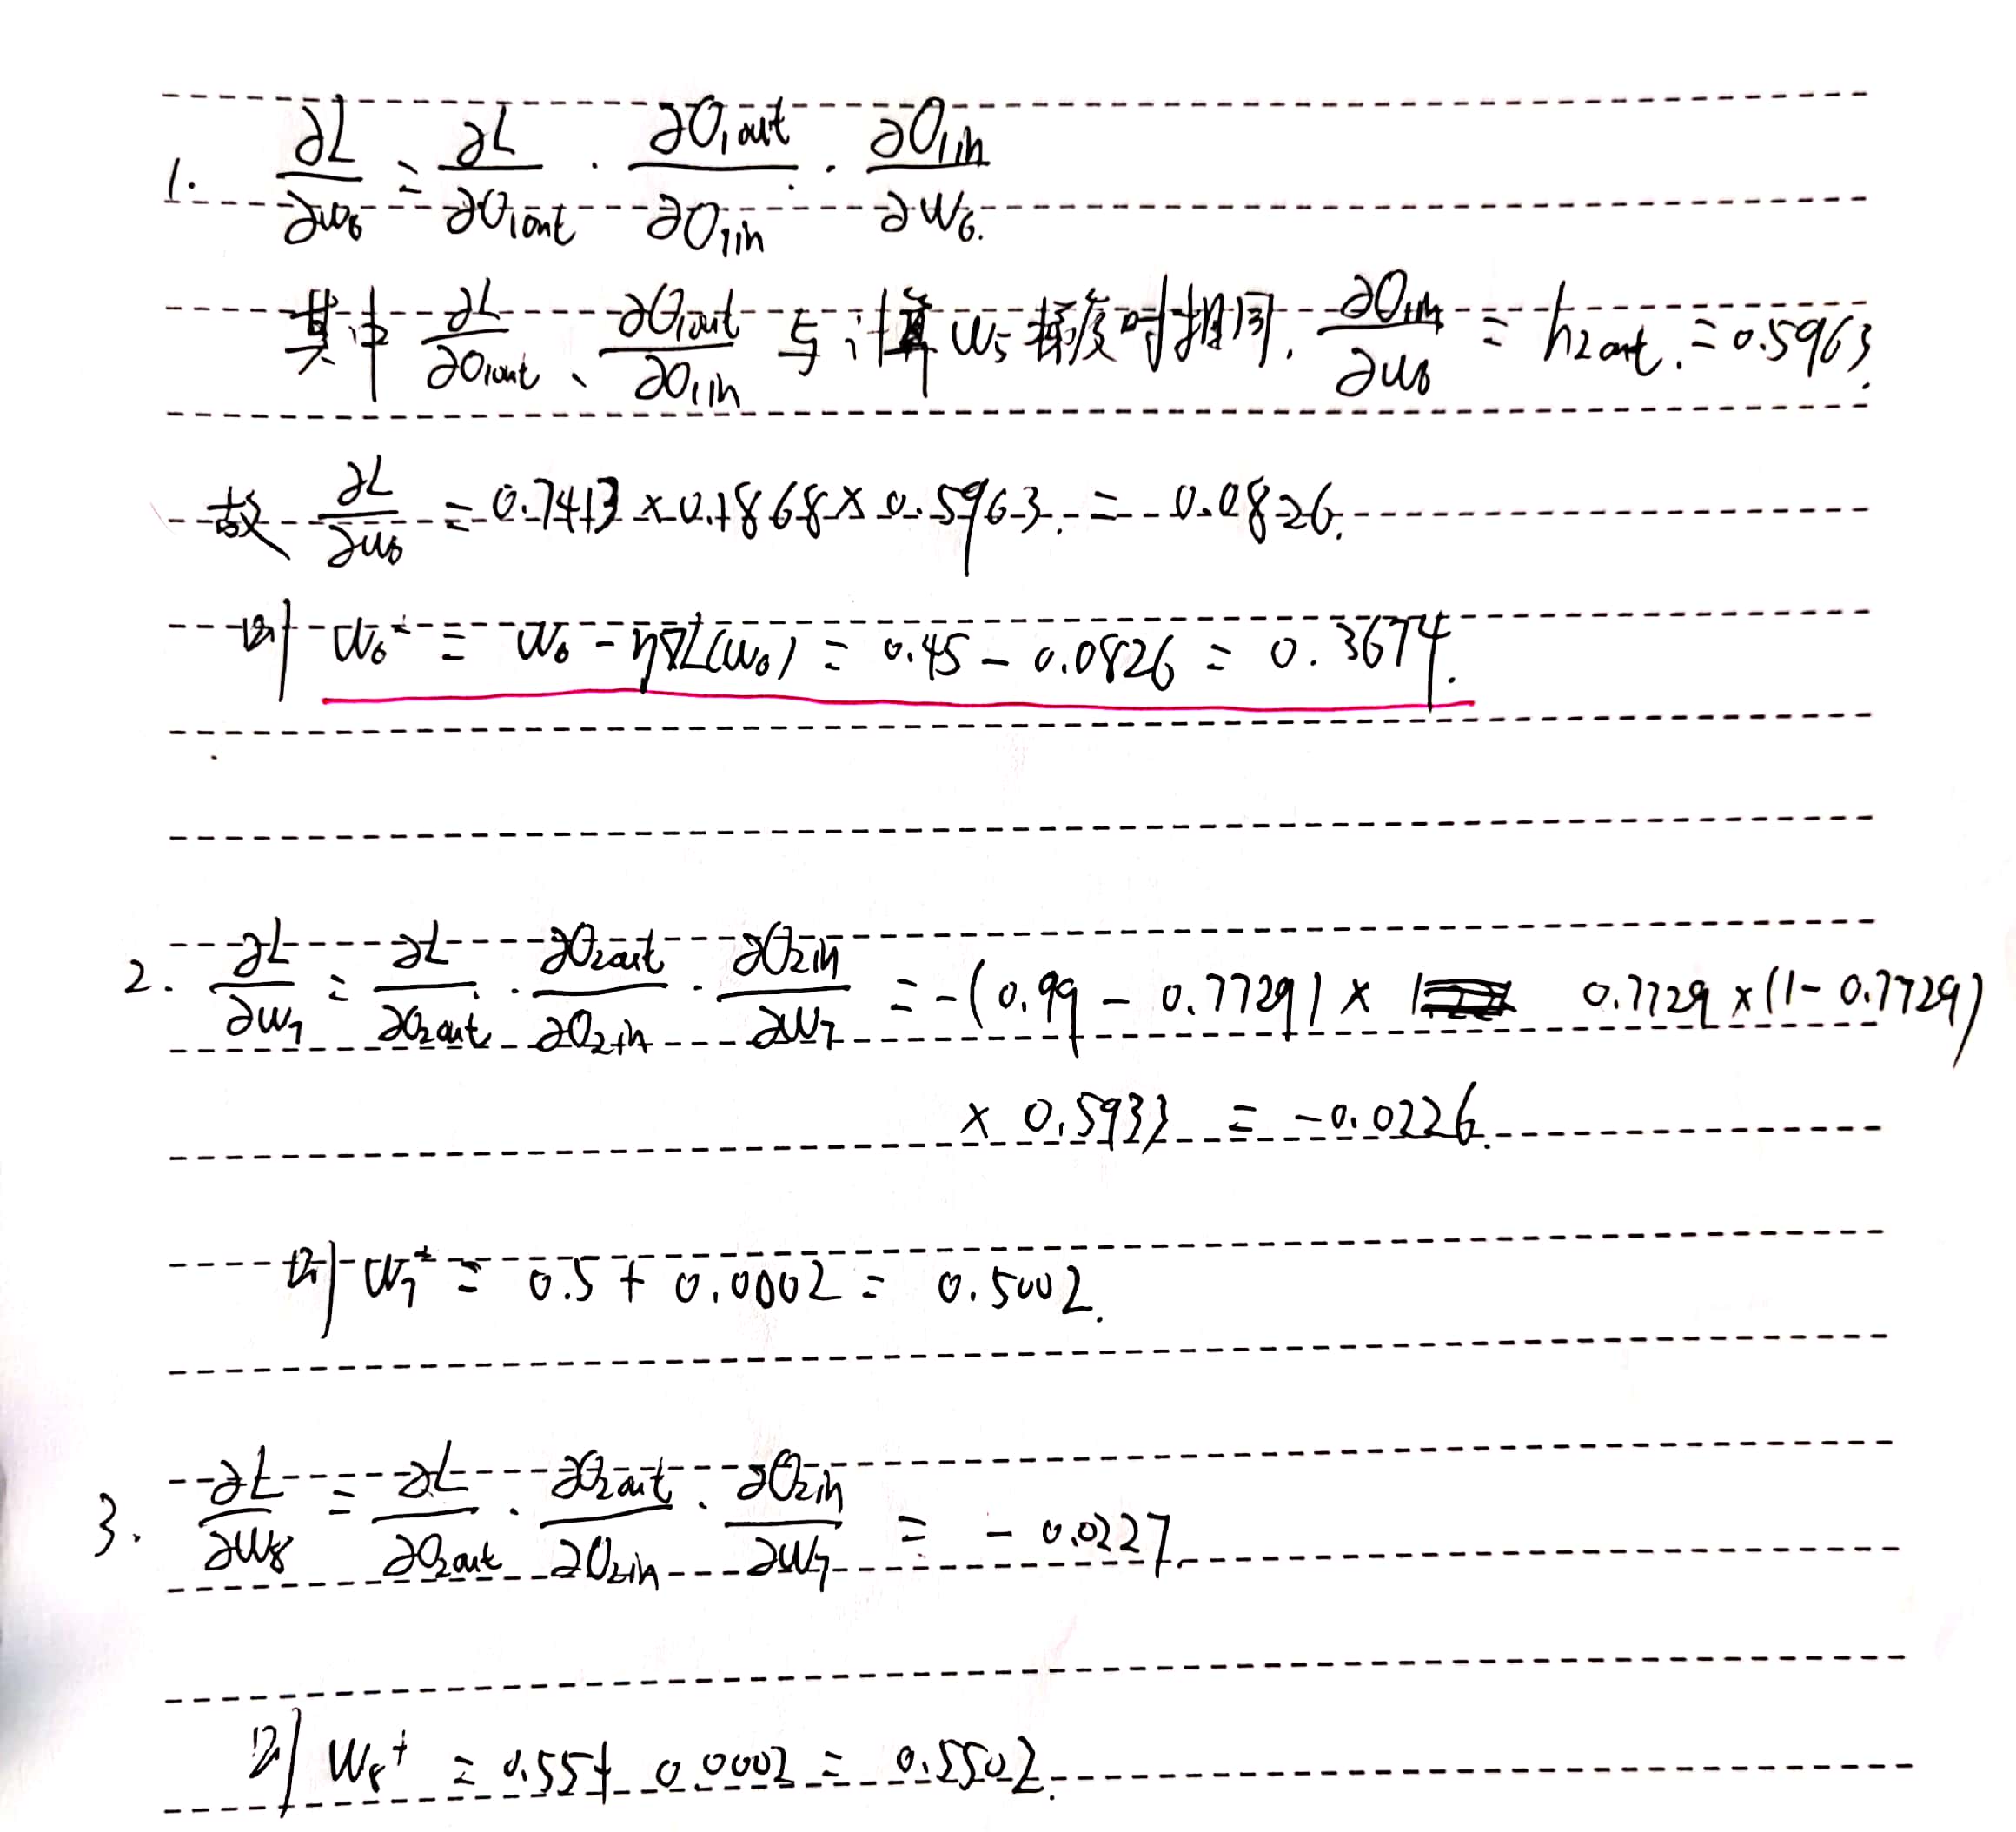 1. ∂L/∂w₆ = ∂L/∂O₁out · ∂O₁out/∂O₁in · ∂O₁in/∂w₆.
其中 ∂L/∂O₁out、∂O₁out/∂O₁in 与计算 w₅ 梯度时相同. ∂O₁in/∂w₆ = h₂out. = 0.5963.
故 ∂L/∂w₆ = 0.7413 × 0.1868 × 0.5963. = 0.0826.
则 w₆⁺ = w₆ - η∇L(w₆) = 0.45 - 0.0826 = 0.3674.
2. ∂L/∂w₇ = ∂L/∂O₂out · ∂O₂out/∂O₂in · ∂O₂in/∂w₇ = -(0.99 - 0.7729) × 0.7729 × (1 - 0.7729)
× 0.5933 = -0.0226.
则 w₇⁺ = 0.5 + 0.0002 = 0.5002.
3. ∂L/∂w₈ = ∂L/∂O₂out · ∂O₂out/∂O₂in · ∂O₂in/∂w₇ = -0.0227.
则 w₈⁺ = 0.55 + 0.0002 = 0.5502.